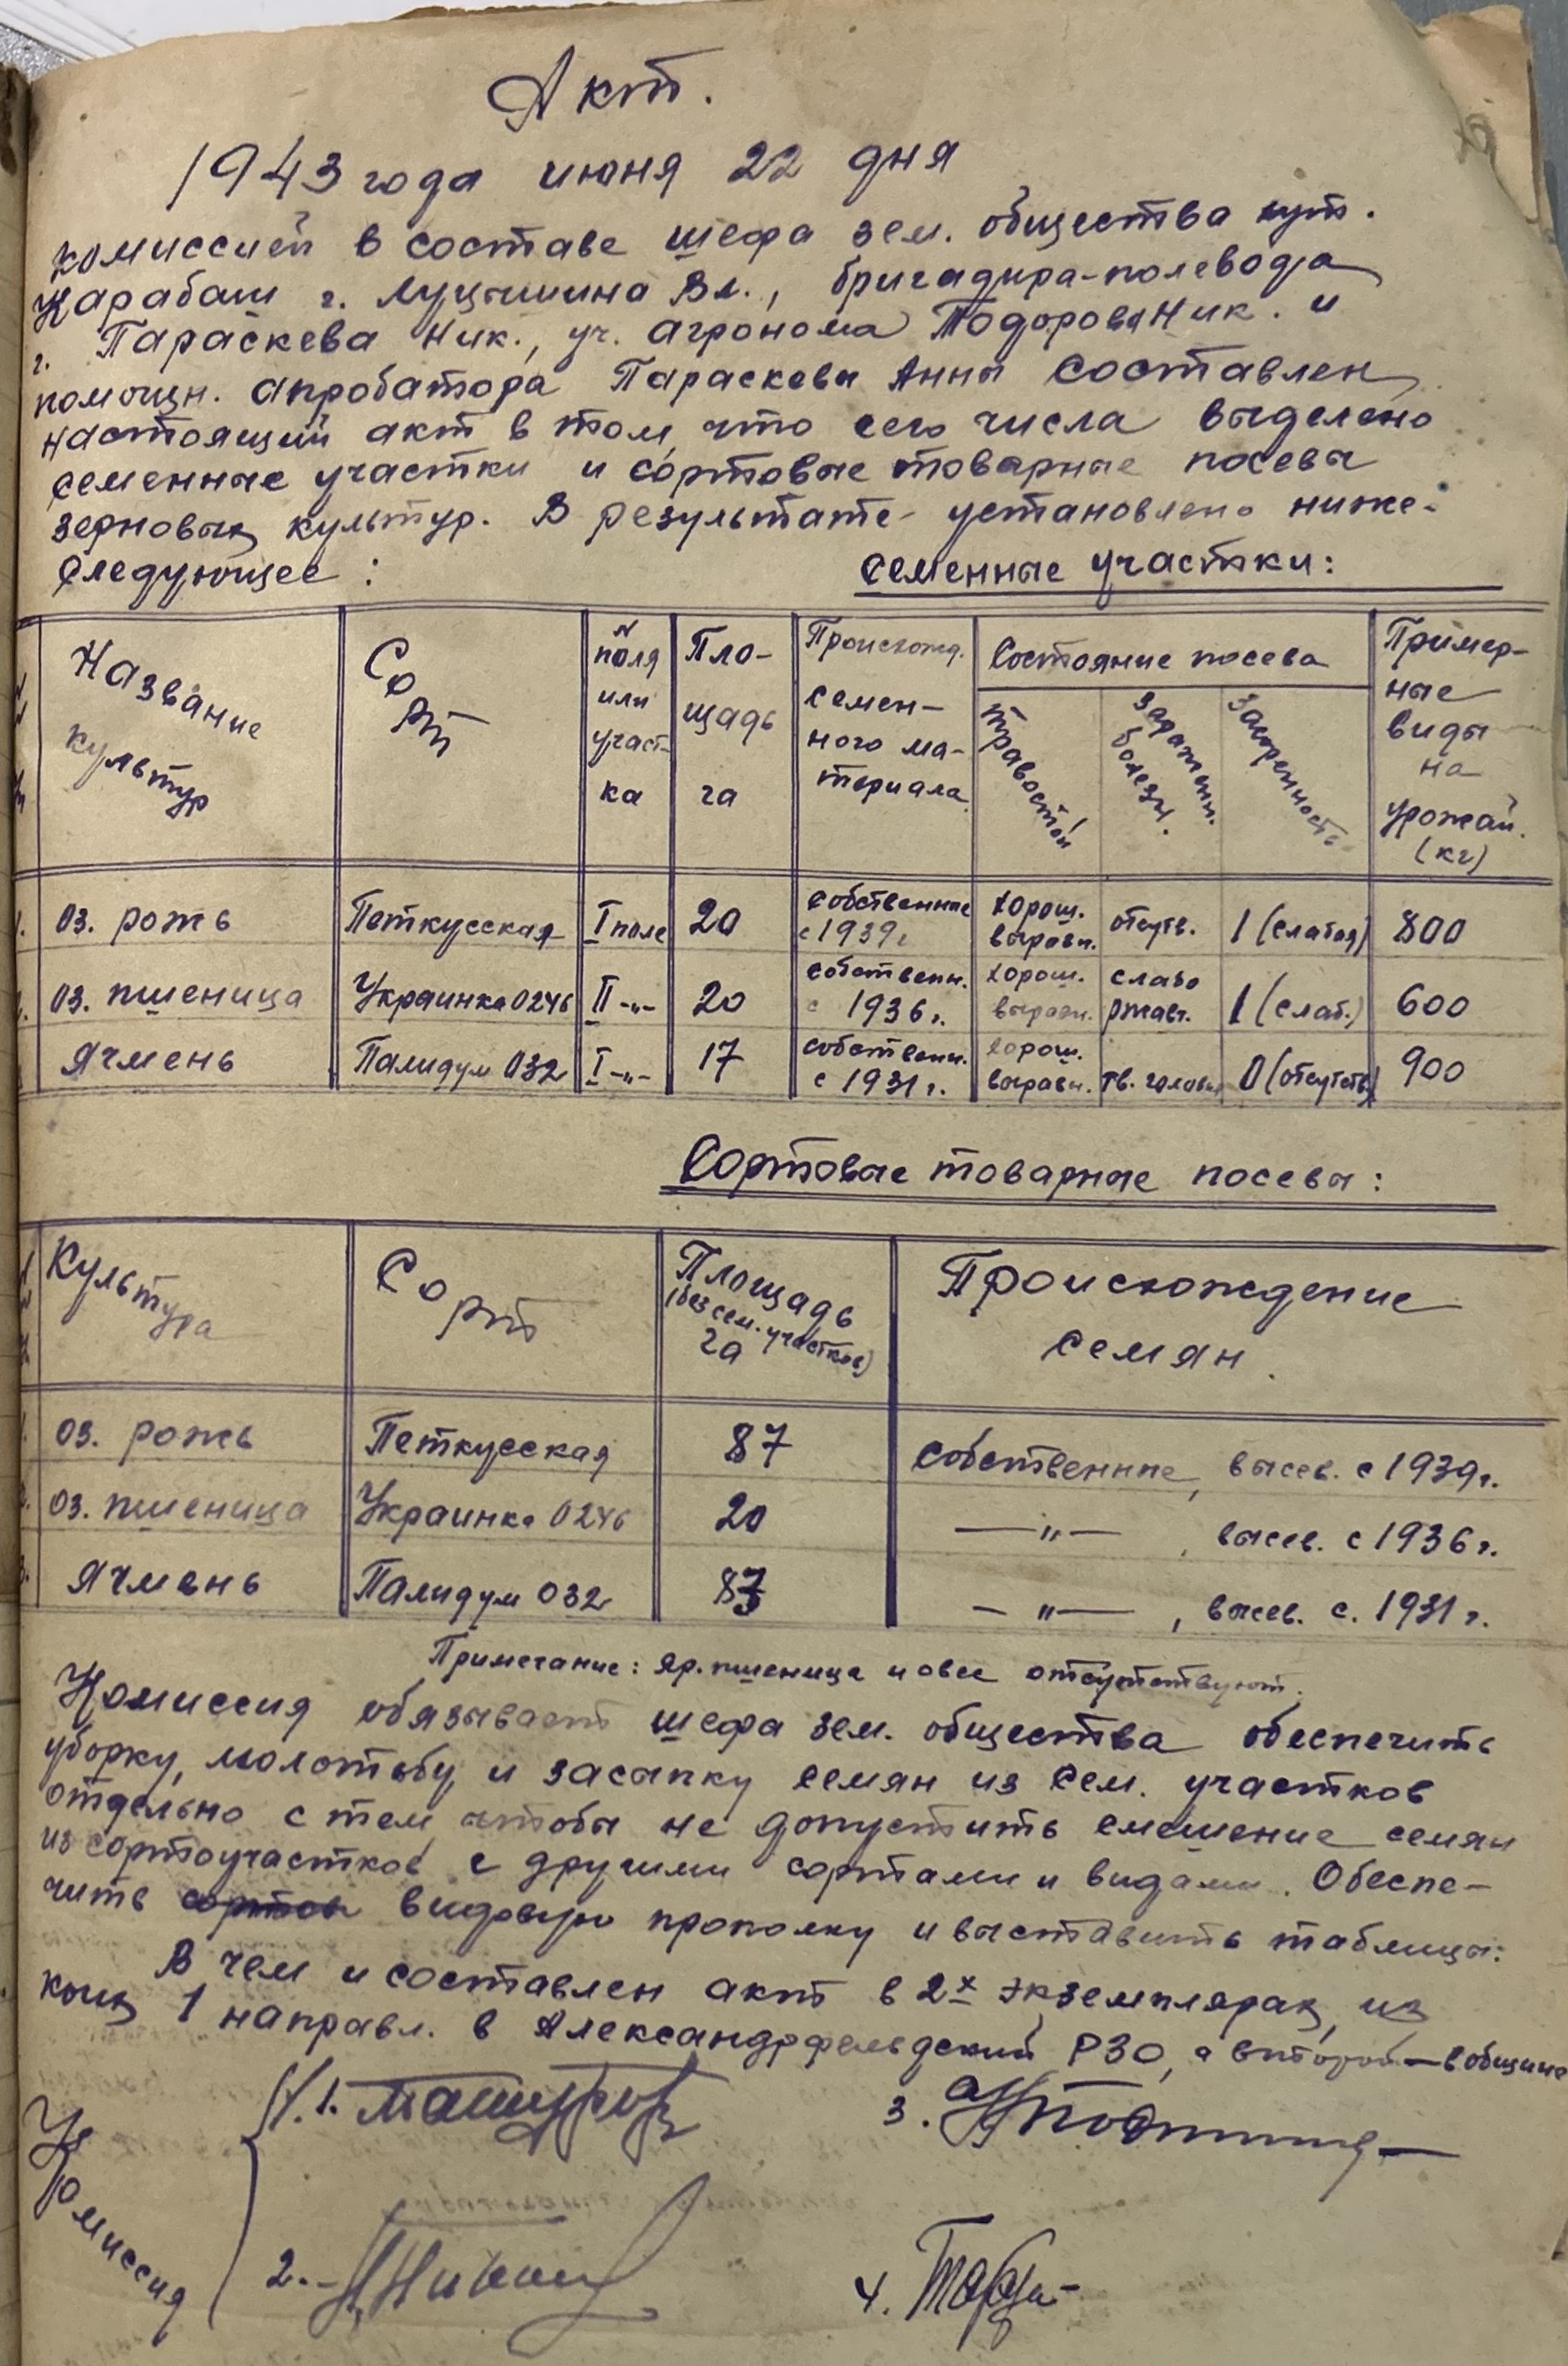 Акт.
1943 года июня 22 дня
комиссией в составе шефа зем. общества хут.
Карабаш г. Луцышина Вл., бригадира-полевода
г. Параскева Ник., уч. агронома Тодорова Ник. и
помощн. апробатора Параскевы Анны составлен
настоящий акт в том, что сего числа выделено
семенные участки и сортовые товарные посевы
зерновых культур. В результате установлено ниже-
следующее :
Семенные участки:
Название культур
Сорт
N поля или участ-ка
Пло-щадь га
Происхожд. семен-ного ма-териала
Состояние посева
травостой
Заражени. болезн.
Засоренность
Пример-ные виды на урожай. (кг)
03. рожь Петкусская I поле 20 собственные с 1939 г хорош. выравн. отсутв. 1 (слабая) 800
03. пшеница Украинка 0246 II -"- 20 собственн. с 1936 г. хорош. выравн. слабо ржавч. 1 (слаб.) 600
ячмень Палидум 032 I -"- 17 собственн. с 1931 г. хорош. выравн. тв. головн 0 (отсутств) 900
Сортовые товарные посевы :
Культура
Сорт
Площадь (без сем. участков) га
Происхождение семян
03. рожь Петкусская 87 собственные, высев. с 1939 г.
03. пшеница Украинка 0246 20 —"— , высев. с 1936 г.
ячмень Палидум 032 —"— , высев. с. 1931 г.
Примечание: яр. пшеница и овес отсутствуют.
Комиссия обязывает шефа зем. общества обеспечить
уборку, молотьбу и засыпку семян из сем. участков
отдельно с тем, чтобы не допустить смешение семян
из сортоучастков с другими сортами и видами. Обеспе-
чить видовую прополку и выставить таблицы:
В чем и составлен акт в 2х экземплярах, из
коих 1 направл. в Александрфельдский РЗО, а второй — в общине
Комиссия
1.
2.
3.
4.